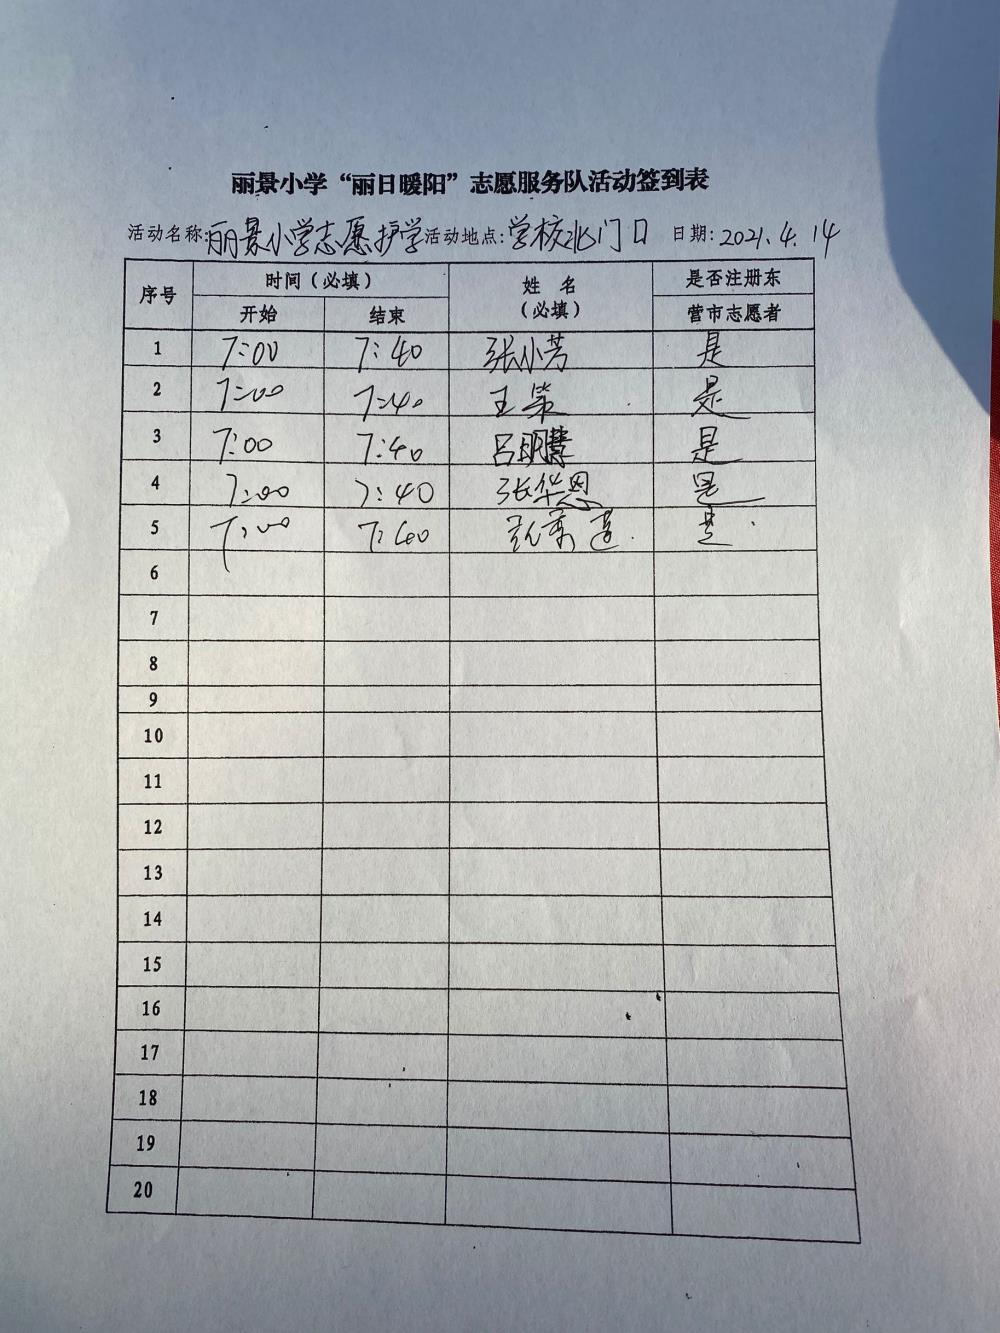 丽景小学“丽日暖阳”志愿服务队活动签到表
活动名称:丽景小学志愿护学 活动地点:学校北门口 日期:2021.4.14
序号 时间(必填) 姓 名 是否注册东
开始 结束 (必填) 营市志愿者
1 7:00 7:40 张小芳 是
2 7:00 7:40 王荣 是
3 7:00 7:40 吕明慧 是
4 7:00 7:40 张华恩 是
5 7:00 7:40 是
6
7
8
9
10
11
12
13
14
15
16
17
18
19
20